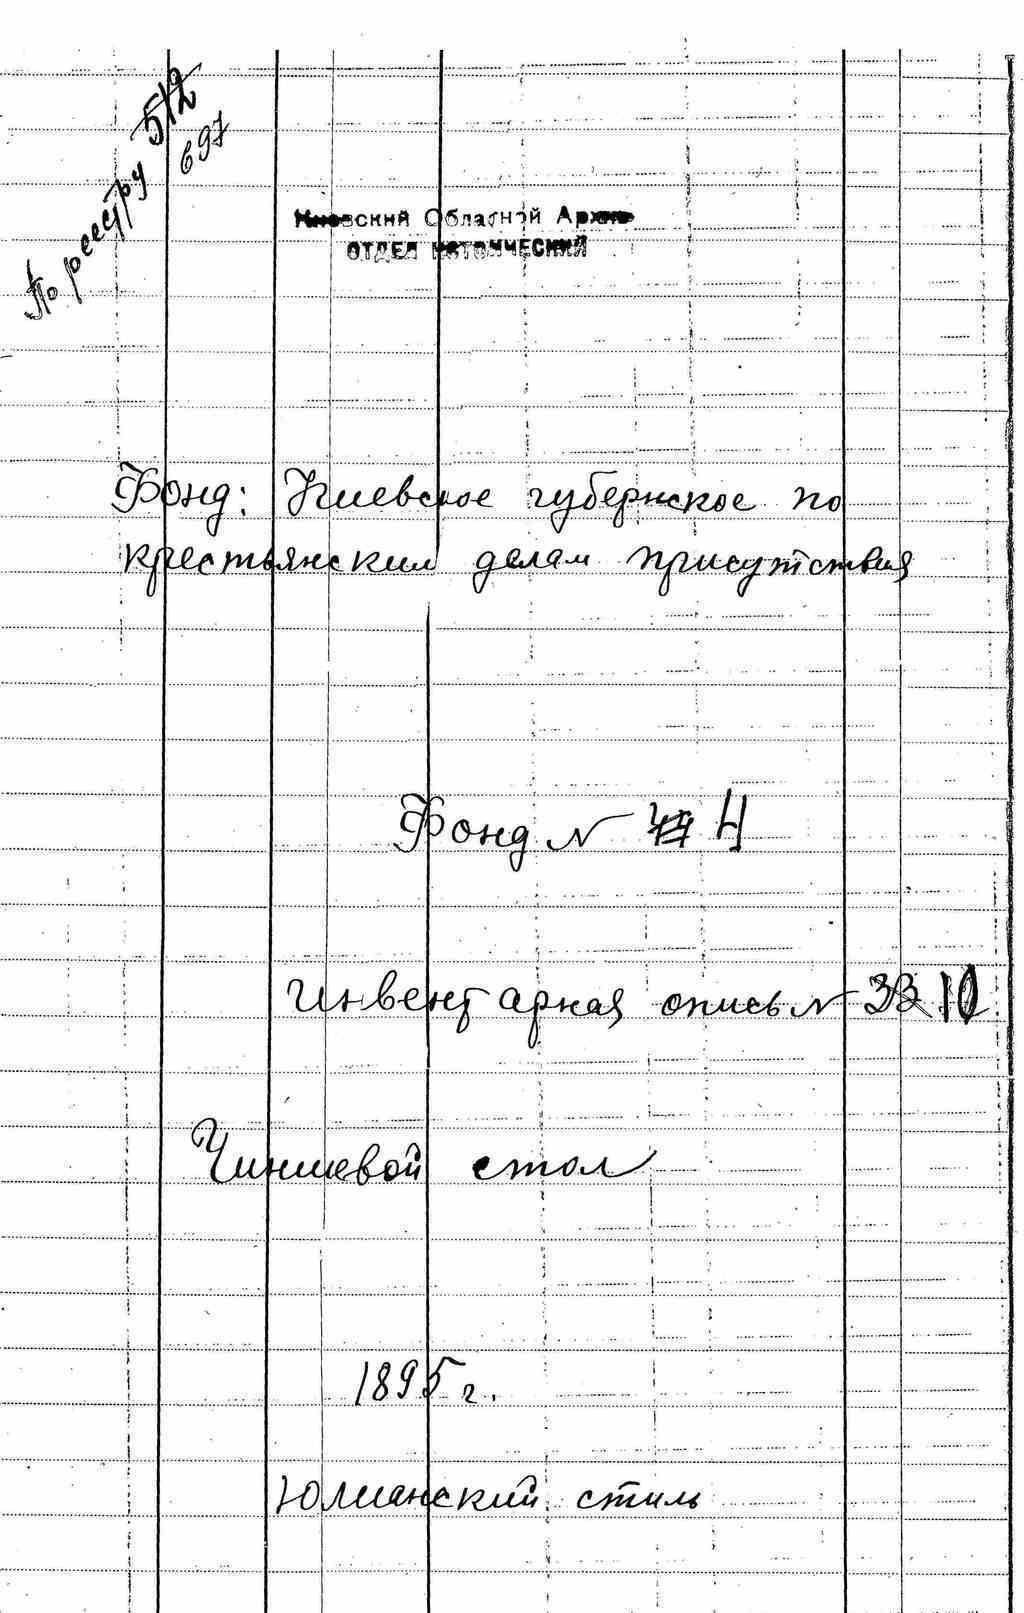 По реестру 512
697
Киевский Областной Архив
ОТДЕЛ ИСТОРИЧЕСКИЙ
Фонд: Киевское губернское по
крестьянским делам присутствия
Фонд N 4
Инвентарная опись N 33 10
Чиншевой стол
1895 г.
Юлианский стиль